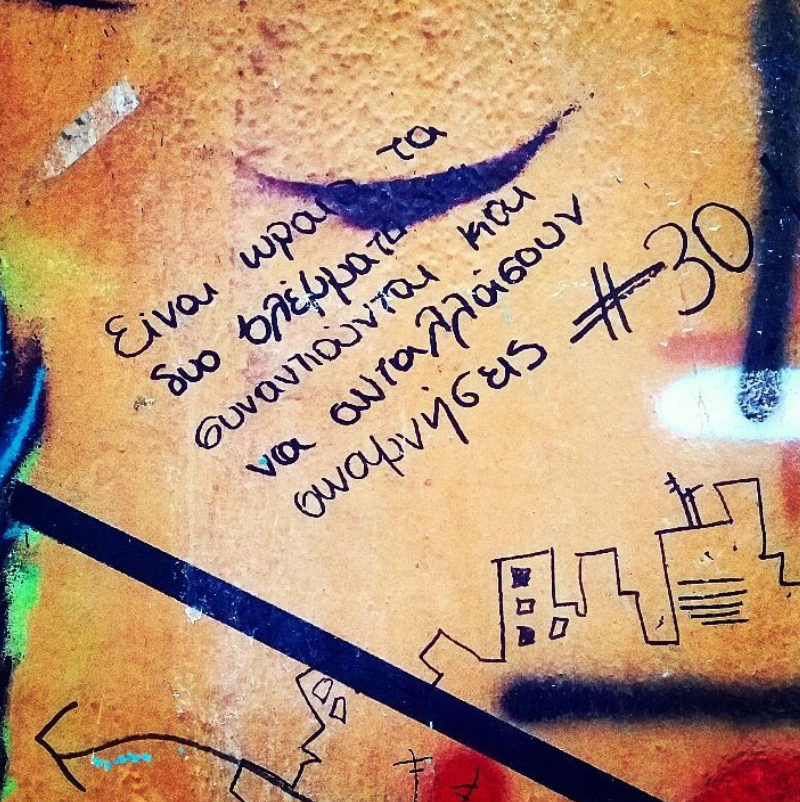 Είναι τα
δυο βλέμματα
συναντιούνται και
να ανταλλάσουν
αναμνήσεις #30